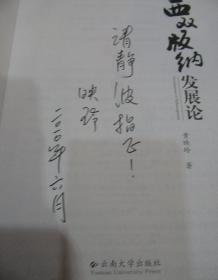 西双版纳
发展论
黄映玲 著
请静波指正！
映玲
二〇一〇年六月
云南大学出版社
Yunnan University Press